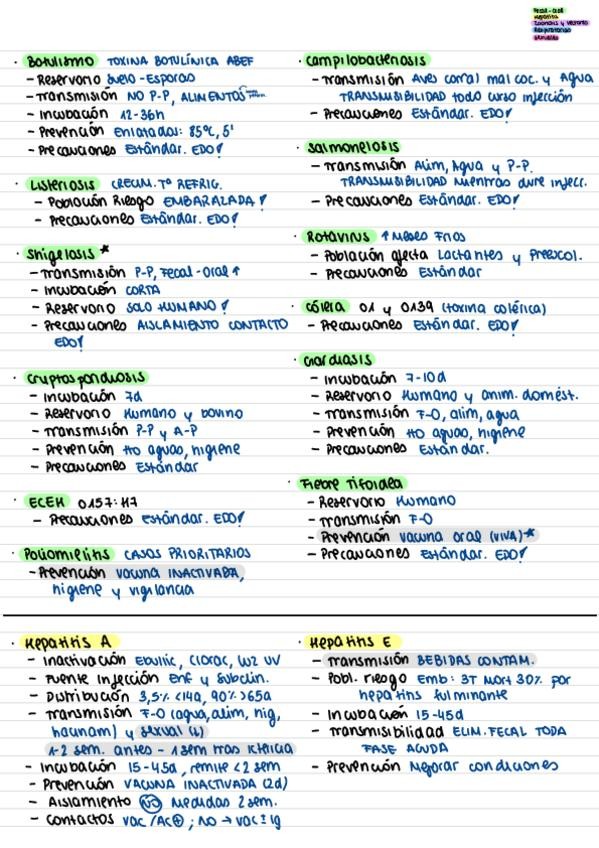 Fecal-oral
Hepatitis
Zoonosis y vectores
Respiratorias
Sexuales
· Botulismo TOXINA BOTULÍNICA ABEF
- Reservorio Suelo - Esporas
- Transmisión NO P-P, ALIMENTOS
- Incubación 12-36h
- Prevención Enlatados: 85ºC, 5'
- Precauciones Estándar. EDO!
· Listeriosis CRECIM. Tª REFRIG.
- Población Riesgo EMBARAZADA!
- Precauciones Estándar. EDO!
· Shigelosis *
- Transmisión P-P, Fecal-Oral ↑
- Incubación CORTA
- Reservorio SOLO HUMANO!
- Precauciones AISLAMIENTO CONTACTO
EDO!
· Cryptosporidiosis
- Incubación 7d
- Reservorio Humano y bovino
- Transmisión P-P y A-P
- Prevención tto aguas, higiene
- Precauciones Estándar
· ECEH O157:H7
- Precauciones estándar. EDO!
· Poliomielitis CASOS PRIORITARIOS
- Prevención vacuna INACTIVADA,
higiene y vigilancia
· Campilobacteriosis
- Transmisión Aves corral mal coc. y Agua
TRANSMISIBILIDAD todo curso infección
- Precauciones Estándar. EDO!
· Salmonelosis
- Transmisión Alim, Agua y P-P.
TRANSMISIBILIDAD mientras dure infecc.
- Precauciones Estándar. EDO!
· Rotavirus ↑ Meses Fríos
- Población afecta Lactantes y Preescol.
- Precauciones Estándar
· Cólera O1 y O139 (toxina colérica)
- Precauciones Estándar. EDO!
· Giardiasis
- Incubación 7-10d
- Reservorio Humano y anim. domést.
- Transmisión F-O, alim, agua
- Prevención tto aguas, higiene
- Precauciones Estándar.
· Fiebre Tifoidea
- Reservorio Humano
- Transmisión F-O
- Prevención vacuna oral (VIVA)*
- Precauciones Estándar. EDO!
· Hepatitis A
- Inactivación Ebullic, Clorac, luz UV
- Fuente Infección Enf y Subclín.
- Distribución 3,5% <14a, 90% >65a
- Transmisión F-O (agua, alim, hig,
hacinam) y sexual
1-2 sem. antes - 1 sem tras ictericia
- Incubación 15-45d, remite <2 sem
- Prevención VACUNA INACTIVADA (2d)
- Aislamiento NO Medidas 2 sem.
- Contactos vac /Ac⊕; NO → vac ± Ig
· Hepatitis E
- Transmisión BEBIDAS CONTAM.
- Pobl. riesgo Emb: 3T Mort 30% por
hepatitis fulminante
- Incubación 15-45d
- Transmisibilidad ELIM. FECAL TODA
FASE AGUDA
- Prevención Mejorar condiciones